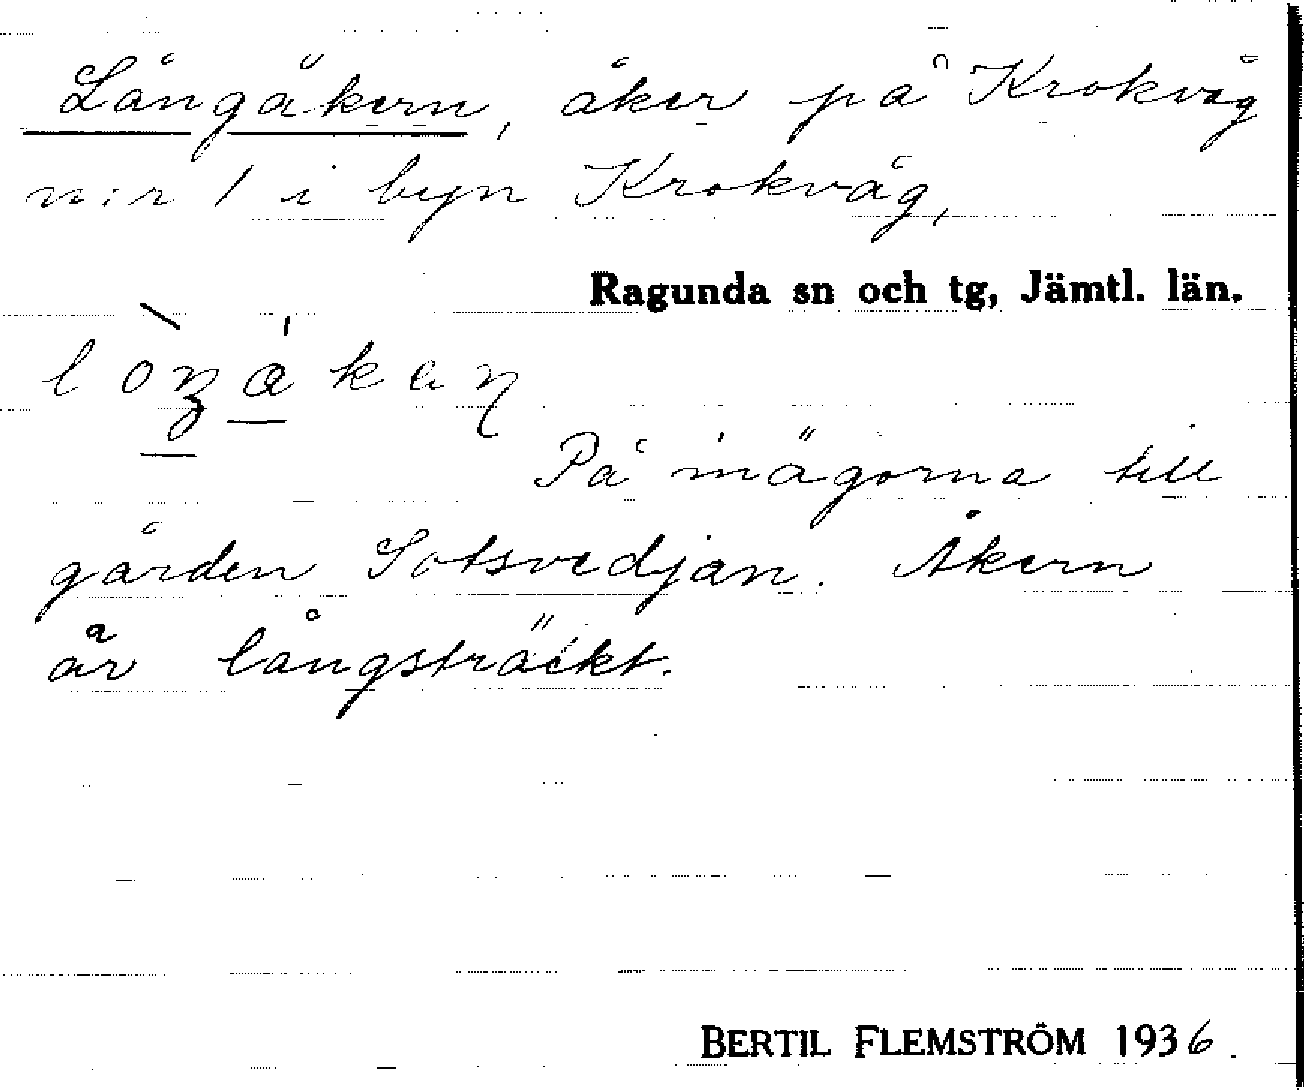 Långåkern, åker på Krokvåg
n:r 1 i byn Krokvåg,
Ragunda sn och tg, Jämtl. län.
På inägorna till
gården Sotsvedjan. Åkern
är långsträckt.
BERTIL FLEMSTRÖM 1936.